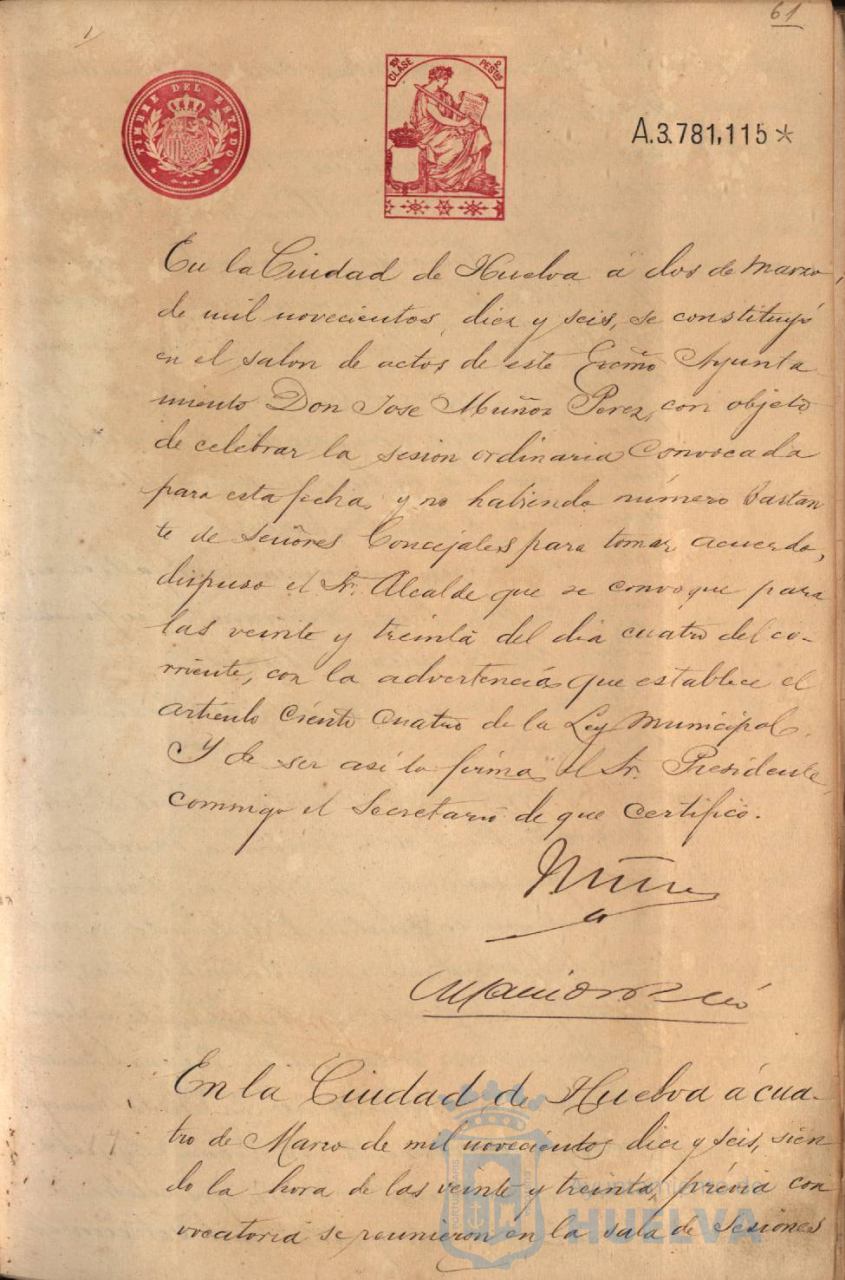 61
TIMBRE DEL ESTADO
10ª CLASE 2 PESTAS
A.3.781,115*
En la Ciudad de Huelva á dos de Marzo,
de mil novecientos, diez y seis, se constituyó
en el salon de actos de este Excmo Ayunta
miento Don Jose Muñoz Perez, con objeto
de celebrar la sesion ordinaria Convocada
para esta fecha, y no habiendo número bastan
te de Señores Concejales para tomar acuerdo,
dispuso el Sr. Alcalde que se convoque para
las veinte y treinta del dia cuatro del co-
rriente, con la advertencia que establece el
artículo Ciento Cuatro de la Ley Municipal.
Y de ser así lo firma el Sr. Presidente,
conmigo el Secretario de que certifico.
Muñoz
En la Ciudad de Huelva á cua-
tro de Marzo de mil novecientos diez y seis, sien
do la hora de las veinte y treinta, prévia con
vocatoria se reunieron en la sala de Sesiones
Ayuntamiento de
HUELVA